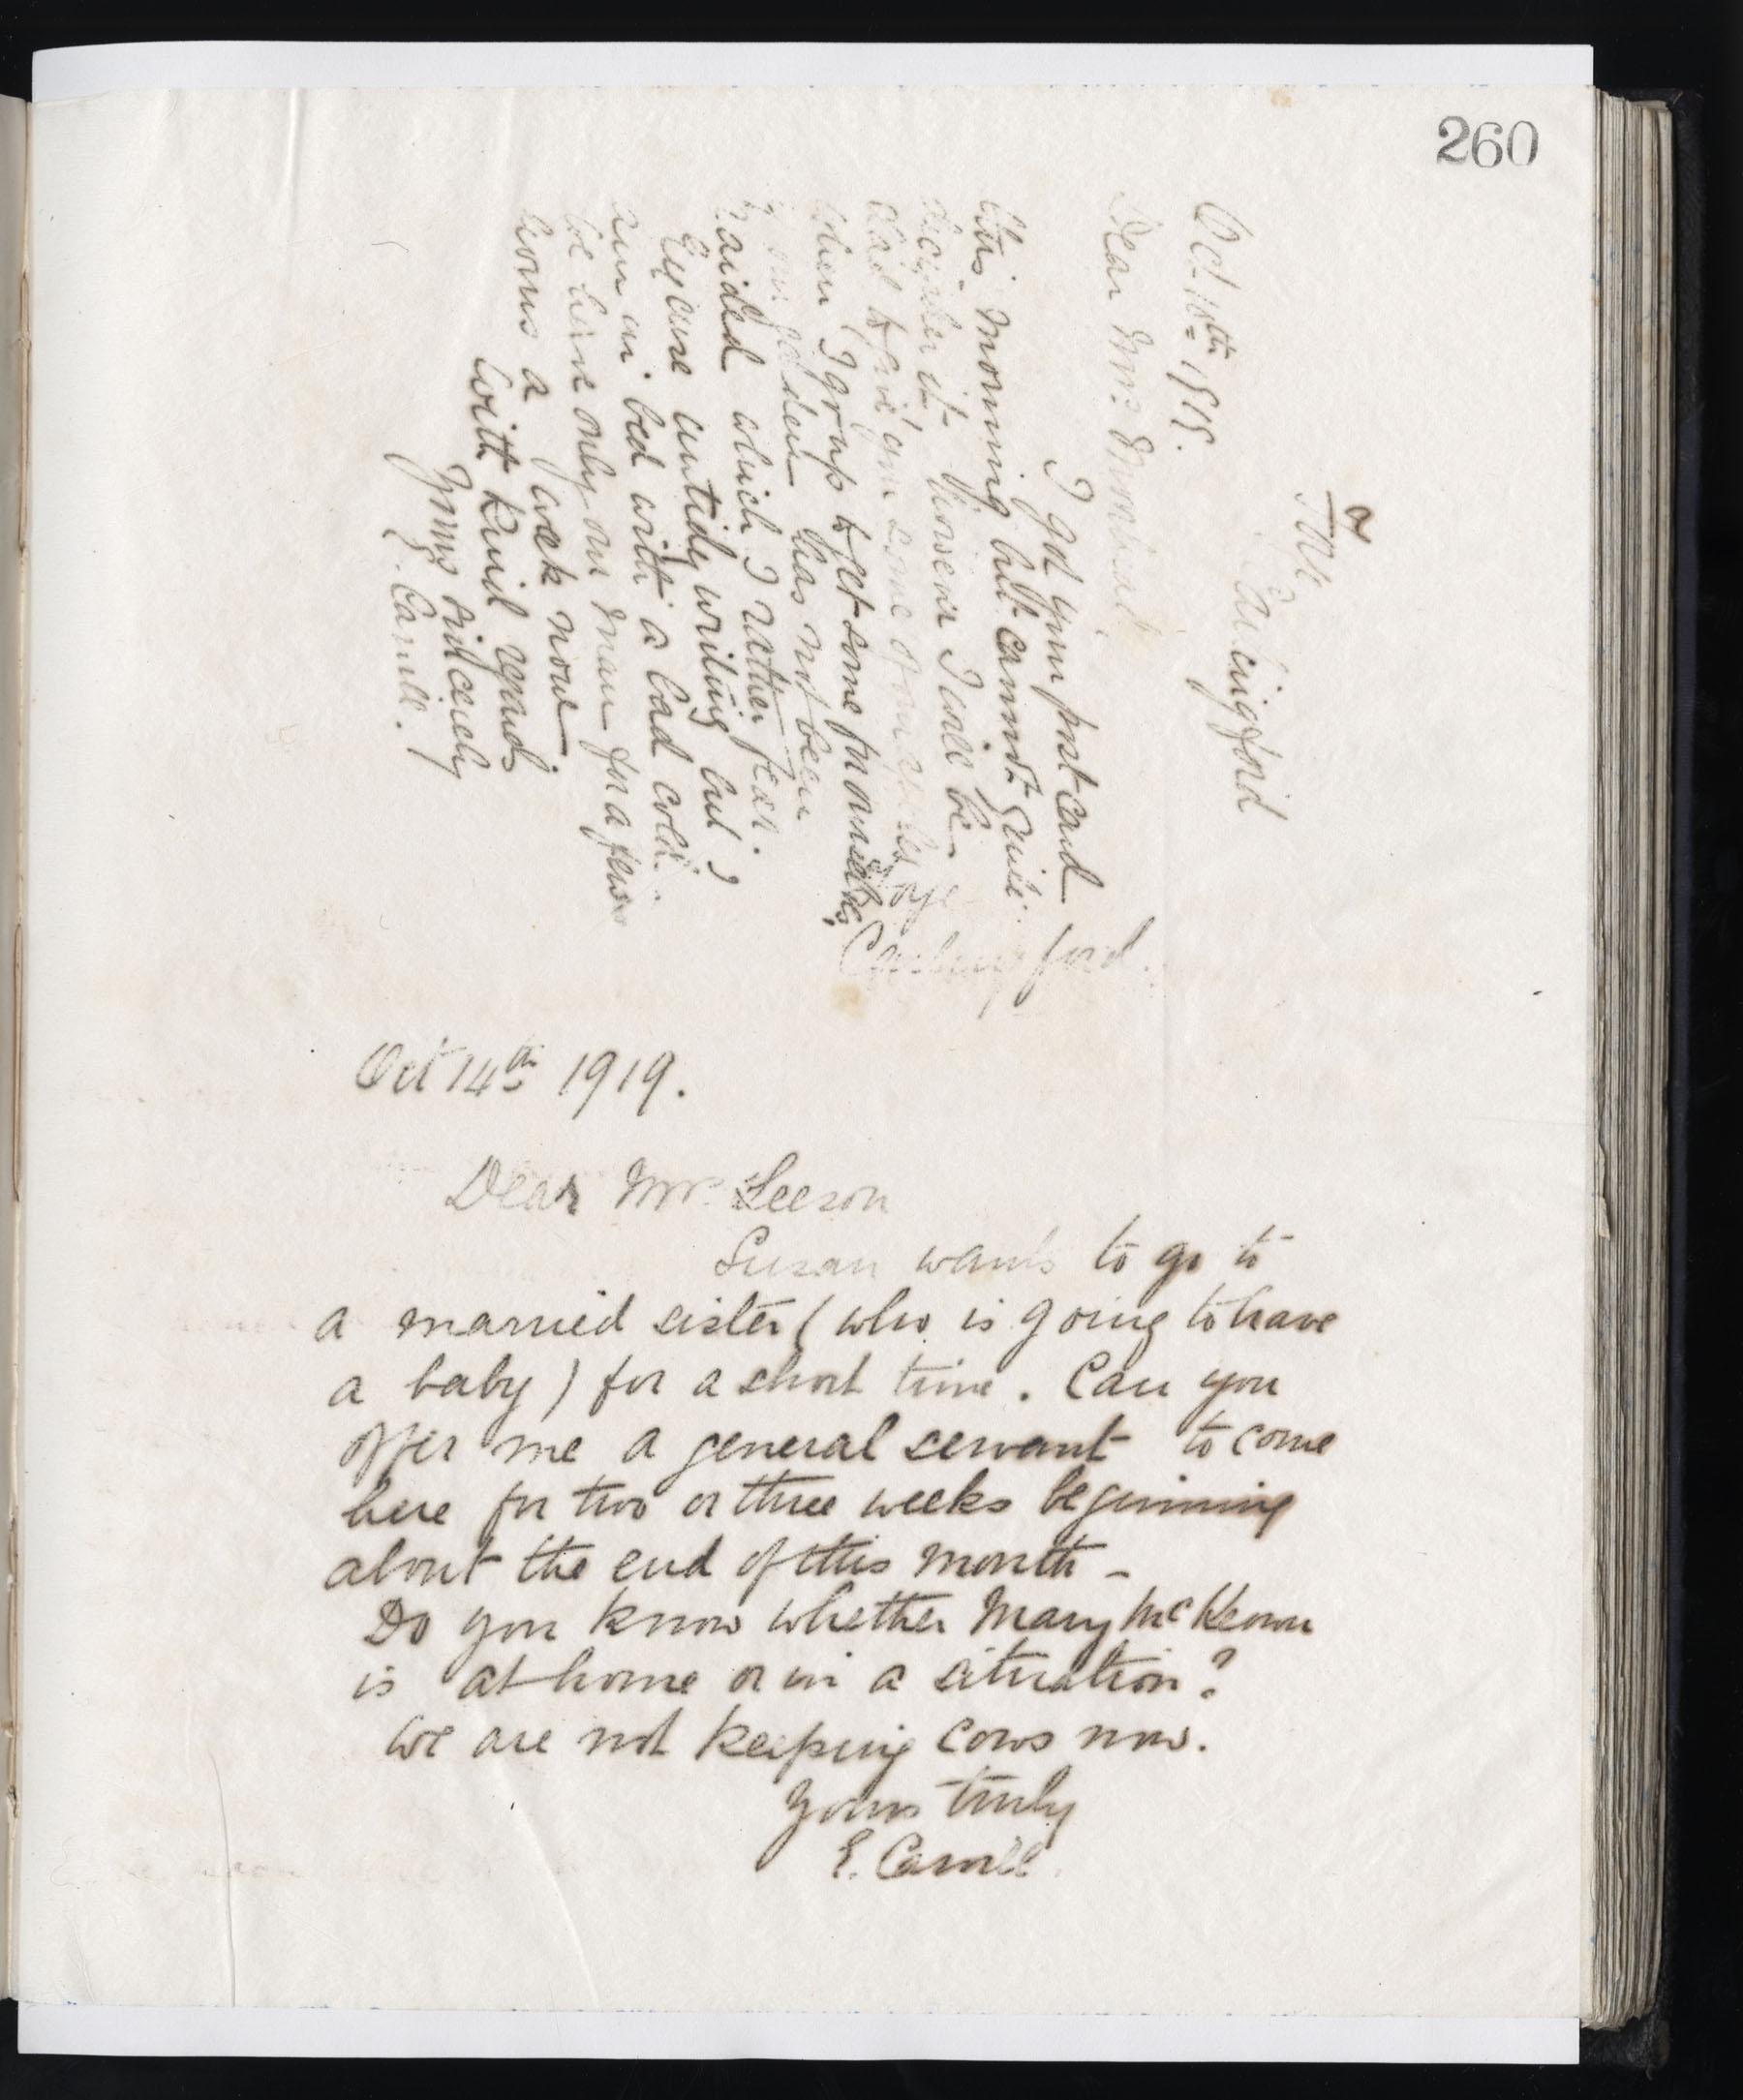 260
Carlingford
Oct 10th 1919.
Dear Mrs
I got your post card
this morning but cannot quite
decipher it however I will be
glad to give you some of our apples
when I grasp to get some for ourselves.
garden has not been
raided which I rather fear.
Excuse untidy writing but I
am in bed with a bad cold.
be here only one man for a few
hours a week now
With kind regards
Yours sincerely
E. Carvill.
Carlingford.
Oct 14th 1919.
Dear Mrs Leeson
Susan wants to go to
a married sister (who is going to have
a baby) for a short time. Can you
offer me a general servant to come
here for two or three weeks beginning
about the end of this month -
Do you know whether Mary McKeown
is at home or in a situation?
We are not keeping cows now.
Yours truly
E. Carvill.